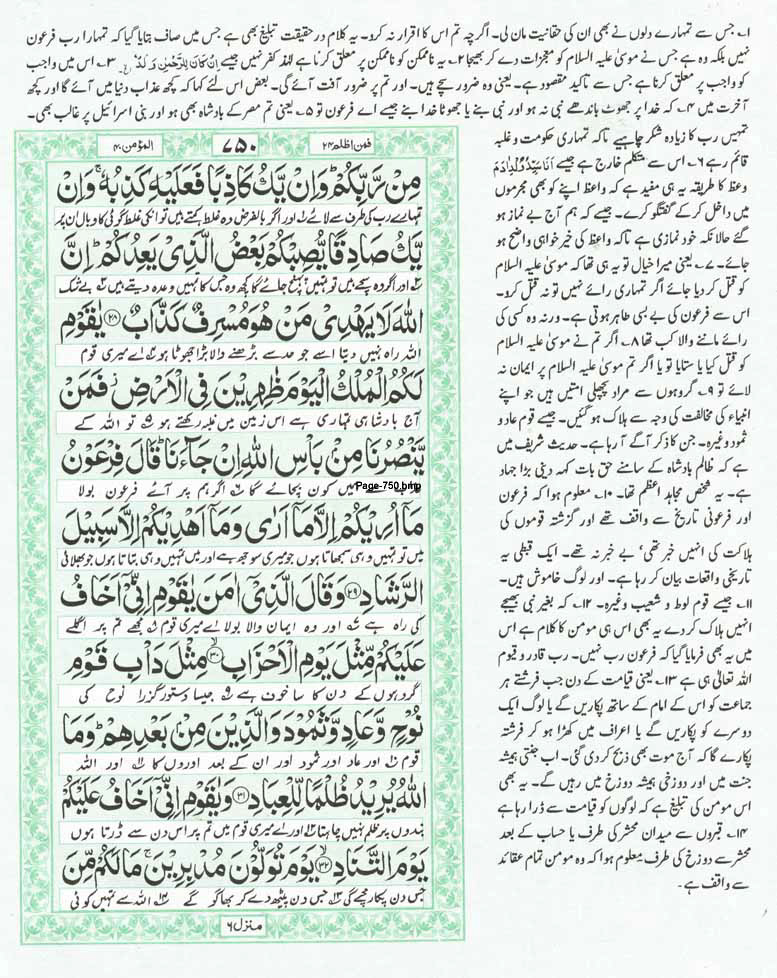 ۱۔ جس سے تمہارے دلوں نے بھی ان کی حقانیت مان لی۔ اگرچہ تم اس کا اقرار نہ کرو۔ یہ کلام درحقیقت تبلیغ بھی ہے جس میں صاف بتایا گیا کہ تمہارا رب فرعون
نہیں بلکہ وہ ہے جس نے موسیٰ علیہ السلام کو معجزات دے کر بھیجا ۲۔ یہ ناممکن کو ناممکن پر معلق کرنا ہے لہٰذا کفر نہیں جیسے اِنْ كَانَ لِلرَّحْمٰنِ وَلَدٌ ۳۔ اس میں واجب
کو واجب پر معلق کرنا ہے جس سے تاکید مقصود ہے۔ یعنی وہ ضرور سچے ہیں۔ اور تم پر ضرور آفت آئے گی۔ بعض اس لئے کہا کہ کچھ عذاب دنیا میں آئے گا اور کچھ
آخرت میں ۴۔ کہ خدا پر جھوٹ باندھے نبی نہ ہو اور نبی بنے یا جھوٹا خدا بنے جیسے اے فرعون تو ۵۔ یعنی تم مصر کے بادشاہ بھی ہو اور بنی اسرائیل پر غالب بھی۔
تمہیں رب کا زیادہ شکر چاہیے تاکہ تمہاری حکومت و غلبہ
قائم رہے ۶۔ اس سے متکلم خارج ہے جیسے اَنَا سَيِّدُ وُلْدِ اٰدَمَ
وعظ کا طریقہ یہ ہی مفید ہے کہ واعظ اپنے کو بھی مجرموں
میں داخل کر کے گفتگو کرے۔ جیسے کہ ہم آج بے نماز ہو
گئے حالانکہ خود نمازی ہے تاکہ واعظ کی خیر خواہی واضح ہو
جائے۔ ۷۔ یعنی میرا خیال تو یہ ہی تھا کہ موسیٰ علیہ السلام
کو قتل کر دیا جائے اگر تمہاری رائے نہیں تو نہ قتل کرو۔
اس سے فرعون کی بے بسی ظاہر ہوتی ہے۔ ورنہ وہ کسی کی
رائے ماننے والا کب تھا ۸۔ اگر تم نے موسیٰ علیہ السلام
کو قتل کیا یا ستایا تو یا اگر تم موسیٰ علیہ السلام پر ایمان نہ
لائے تو ۹۔ گروہوں سے مراد پچھلی امتیں ہیں جو اپنے
انبیاء کی مخالفت کی وجہ سے ہلاک ہو گئیں۔ جیسے قوم عاد و
ثمود وغیرہ۔ جن کا ذکر آگے آ رہا ہے۔ حدیث شریف میں
ہے کہ ظالم بادشاہ کے سامنے حق بات کہہ دینی بڑا جہاد
ہے۔ یہ شخص مجاہد اعظم تھا۔ ۱۰۔ معلوم ہوا کہ فرعون
اور فرعونی تاریخ سے واقف تھے اور گزشتہ قوموں کی
ہلاکت کی انہیں خبر تھی' بے خبر نہ تھے۔ ایک قبطی یہ
تاریخی واقعات بیان کر رہا ہے۔ اور لوگ خاموش ہیں۔
۱۱۔ جیسے قوم لوط و شعیب وغیرہ۔ ۱۲۔ کہ بغیر نبی بھیجے
انہیں ہلاک کر دے یہ بھی اس ہی مومن کا کلام ہے اس
میں یہ بھی فرمایا گیا کہ فرعون رب نہیں۔ رب قادر و قیوم
اللہ تعالیٰ ہی ہے ۱۳۔ یعنی قیامت کے دن جب فرشتے ہر
جماعت کو اس کے امام کے ساتھ پکاریں گے یا لوگ ایک
دوسرے کو پکاریں گے یا اعراف میں کھڑا ہو کر فرشتہ
پکارے گا کہ آج موت بھی ذبح کر دی گئی۔ اب جنتی ہمیشہ
جنت میں اور دوزخی ہمیشہ دوزخ میں رہیں گے۔ یہ بھی
اس مومن کی تبلیغ ہے کہ لوگوں کو قیامت سے ڈرا رہا ہے
۱۴۔ قبروں سے میدان محشر کی طرف یا حساب کے بعد
محشر سے دوزخ کی طرف معلوم ہوا کہ وہ مومن تمام عقائد
سے واقف ہے۔
فمن اظلم ۲۴ ۷۵۰ المؤمن ۴۰
مِنْ رَّبِّكُمْ وَاِنْ يَّكُ كَاذِبًا فَعَلَيْهِ كَذِبُهٗ ۚ وَاِنْ
تمہارے رب کی طرف سے لائے ۱؎ اور اگر بالفرض وہ غلط کہتے ہیں تو انکی غلط گوئی کا وبال ان پر
يَّكُ صَادِقًا يُّصِبْكُمْ بَعْضُ الَّذِيْ يَعِدُكُمْ ۗ اِنَّ
۲؎ اور اگر وہ سچے ہیں تو تمہیں پہنچ جائے گا کچھ وہ جس کا تمہیں وعدہ دیتے ہیں ۳؎ بے شک
اللّٰهَ لَا يَهْدِيْ مَنْ هُوَ مُسْرِفٌ كَذَّابٌ ﴿۲۸﴾ يٰقَوْمِ
اللہ راہ نہیں دیتا اسے جو حد سے بڑھنے والا بڑا جھوٹا ہو ۴؎ اے میری قوم
لَكُمُ الْمُلْكُ الْيَوْمَ ظٰهِرِيْنَ فِي الْاَرْضِ ۫ فَمَنْ
آج بادشاہی تمہاری ہے اس زمین میں غلبہ رکھتے ہو ۵؎ تو اللہ کے
يَّنْصُرُنَا مِنْۢ بَاْسِ اللّٰهِ اِنْ جَآءَنَا ۭ قَالَ فِرْعَوْنُ
میں کون بچائے گا ۶؎ اگر ہم پر آئے فرعون بولا
Page-750.bmp
مَآ اُرِيْكُمْ اِلَّا مَآ اَرٰى وَمَآ اَهْدِيْكُمْ اِلَّا سَبِيْلَ
میں تو تمہیں وہی سمجھاتا ہوں جو میری سوجھ ہے ۷؎ اور میں تمہیں وہی بتاتا ہوں جو بھلائی
الرَّشَادِ ﴿۲۹﴾ وَقَالَ الَّذِيْٓ اٰمَنَ يٰقَوْمِ اِنِّيْٓ اَخَافُ
کی راہ ہے اور وہ ایمان والا بولا اے میری قوم مجھے تم پر ۸؎ اگلے
عَلَيْكُمْ مِّثْلَ يَوْمِ الْاَحْزَابِ ﴿۳۰﴾ مِثْلَ دَاْبِ قَوْمِ
گروہوں کے دن کا سا خوف ہے ۹؎ جیسا دستور گزرا نوح کی
نُوْحٍ وَّعَادٍ وَّثَمُوْدَ وَالَّذِيْنَ مِنْۢ بَعْدِهِمْ ۭ وَمَا
قوم ۱۰؎ اور عاد اور ثمود اور ان کے بعد اوروں کا ۱۱؎ اور اللہ
اللّٰهُ يُرِيْدُ ظُلْمًا لِّلْعِبَادِ ﴿۳۱﴾ وَيٰقَوْمِ اِنِّيْٓ اَخَافُ عَلَيْكُمْ
بندوں پر ظلم نہیں چاہتا ۱۲؎ اور اے میری قوم میں تم پر اس دن سے ڈرتا ہوں
يَوْمَ التَّنَادِ ﴿۳۲﴾ يَوْمَ تُوَلُّوْنَ مُدْبِرِيْنَ ۚ مَا لَكُمْ مِّنَ
جس دن پکار مچے گی ۱۳؎ جس دن پیٹھ دے کر بھاگو گے ۱۴؎ اللہ سے تمہیں کوئی
منزل ۶